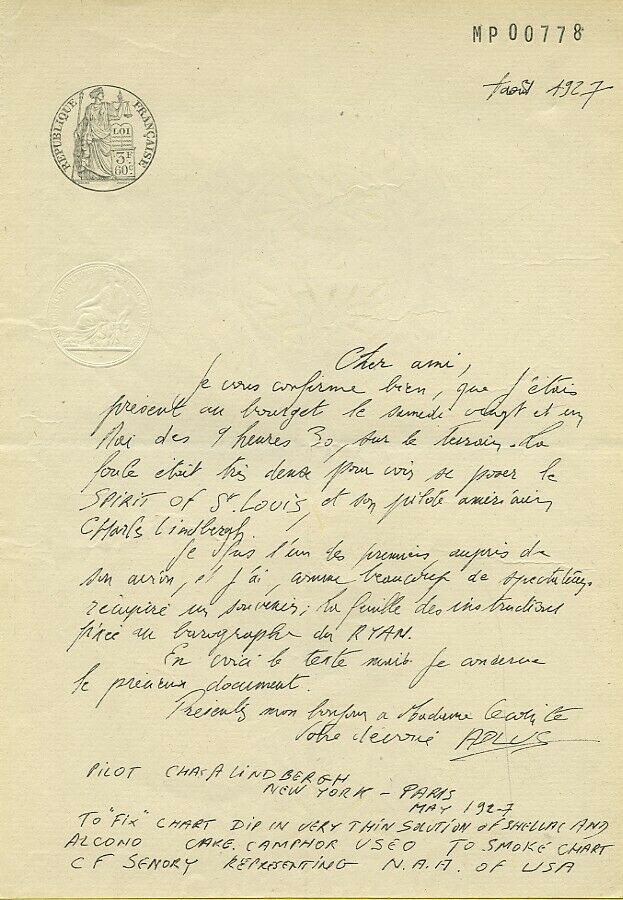 MP 00778
1 août 1927
RÉPUBLIQUE FRANÇAISE
LOI
3F
60c
Cher ami,
Je vous confirme bien, que j'étais
présent au bourget le samedi vingt et un
Mai dès 9 heures 30, sur le terrain. La
foule était très dense pour voir se poser le
SPIRIT OF St. LOUIS, et son pilote américain
CHarles Lindbergh.
Je fus l'un des premiers auprès de
son avion, et j'ai, comme beaucoup de spectateurs
récupéré un souvenir; la feuille des instructions
fixée au barographe du RYAN.
En voici le texte mais je conserve
le précieux document.
Présentez mon bonjour a Madame
Votre dévoué
PILOT CHAS A LINDBERGH
NEW YORK - PARIS
MAY 1927
TO "FIX" CHART DIP IN VERY THIN SOLUTION OF SHELLAC AND
ALCONO CAKE. CAMPHOR USED TO SMOKE CHART
CF SENORY REPRESENTING N.A.A. OF USA